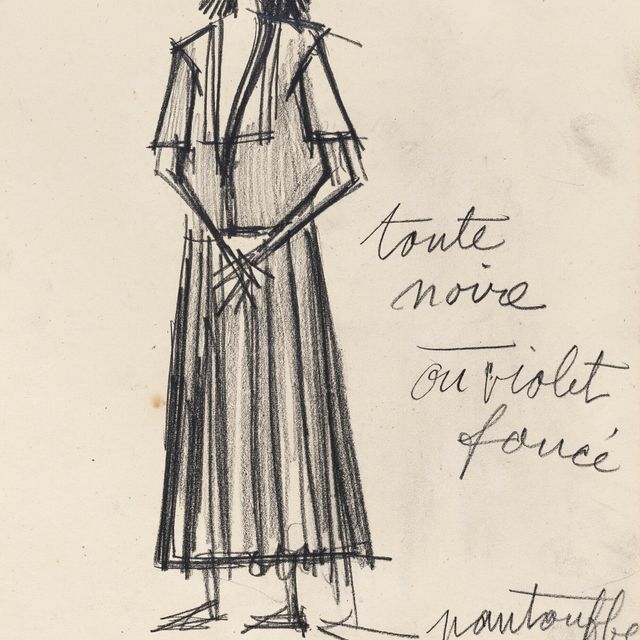 toute
noire
ou violet
foncé
pantouffle